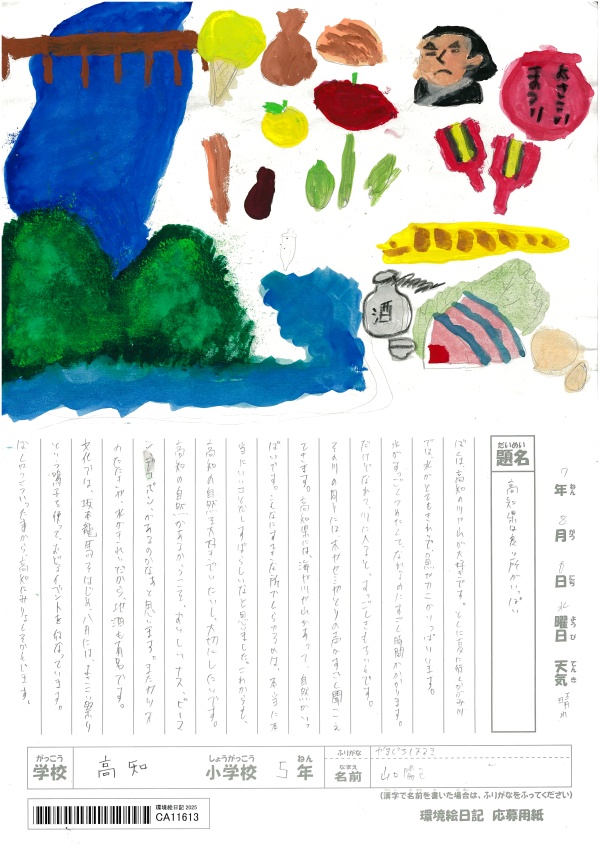 よさこい
まつり
酒
だいめい
題名
高知県は良い所がいっぱい
7年ねん8月がつ6日にち水曜日ようび天気てんき晴れ
ぼくは、高知の川や山が大好きです。とくに夏に行く
では、水がとてもきれいで、魚がいっぱいいます。
水がすっごくつめたくて、ながれ
だけど、なれて川に入ると、すごくきもちいいです。
その川の周りには大ゼミやとりの声がすごく聞こえ
てきます。高知県には、海や川や山があって、自然がいっ
ぱいです。こんなにすてきな所でくらせるのは、本当に本
当にいいことだしすばらしいなと思いました。これからも、
高知の自然を大好きでいたいし大切にしたいです。
高知の自然があるからこそ、おいしいナス、ピーマ
ン、デコポンがあるのかなあと思います。またカツオ
のたたきや、水がきれいだから、地酒も有名です。
文化では、坂本龍馬をはじめ、八月には、よさこい祭り
という鳴子を使って、おどるイベントを行なっています。
高知
がっこう
学校
高知
しょうがっこう
小学校
5
ねん
年
ふりがな
なまえ
名前
山口
(漢字で名前を書いた場合は、ふりがなをふってください)
環境絵日記 2025
CA11613
環境絵日記 応募用紙